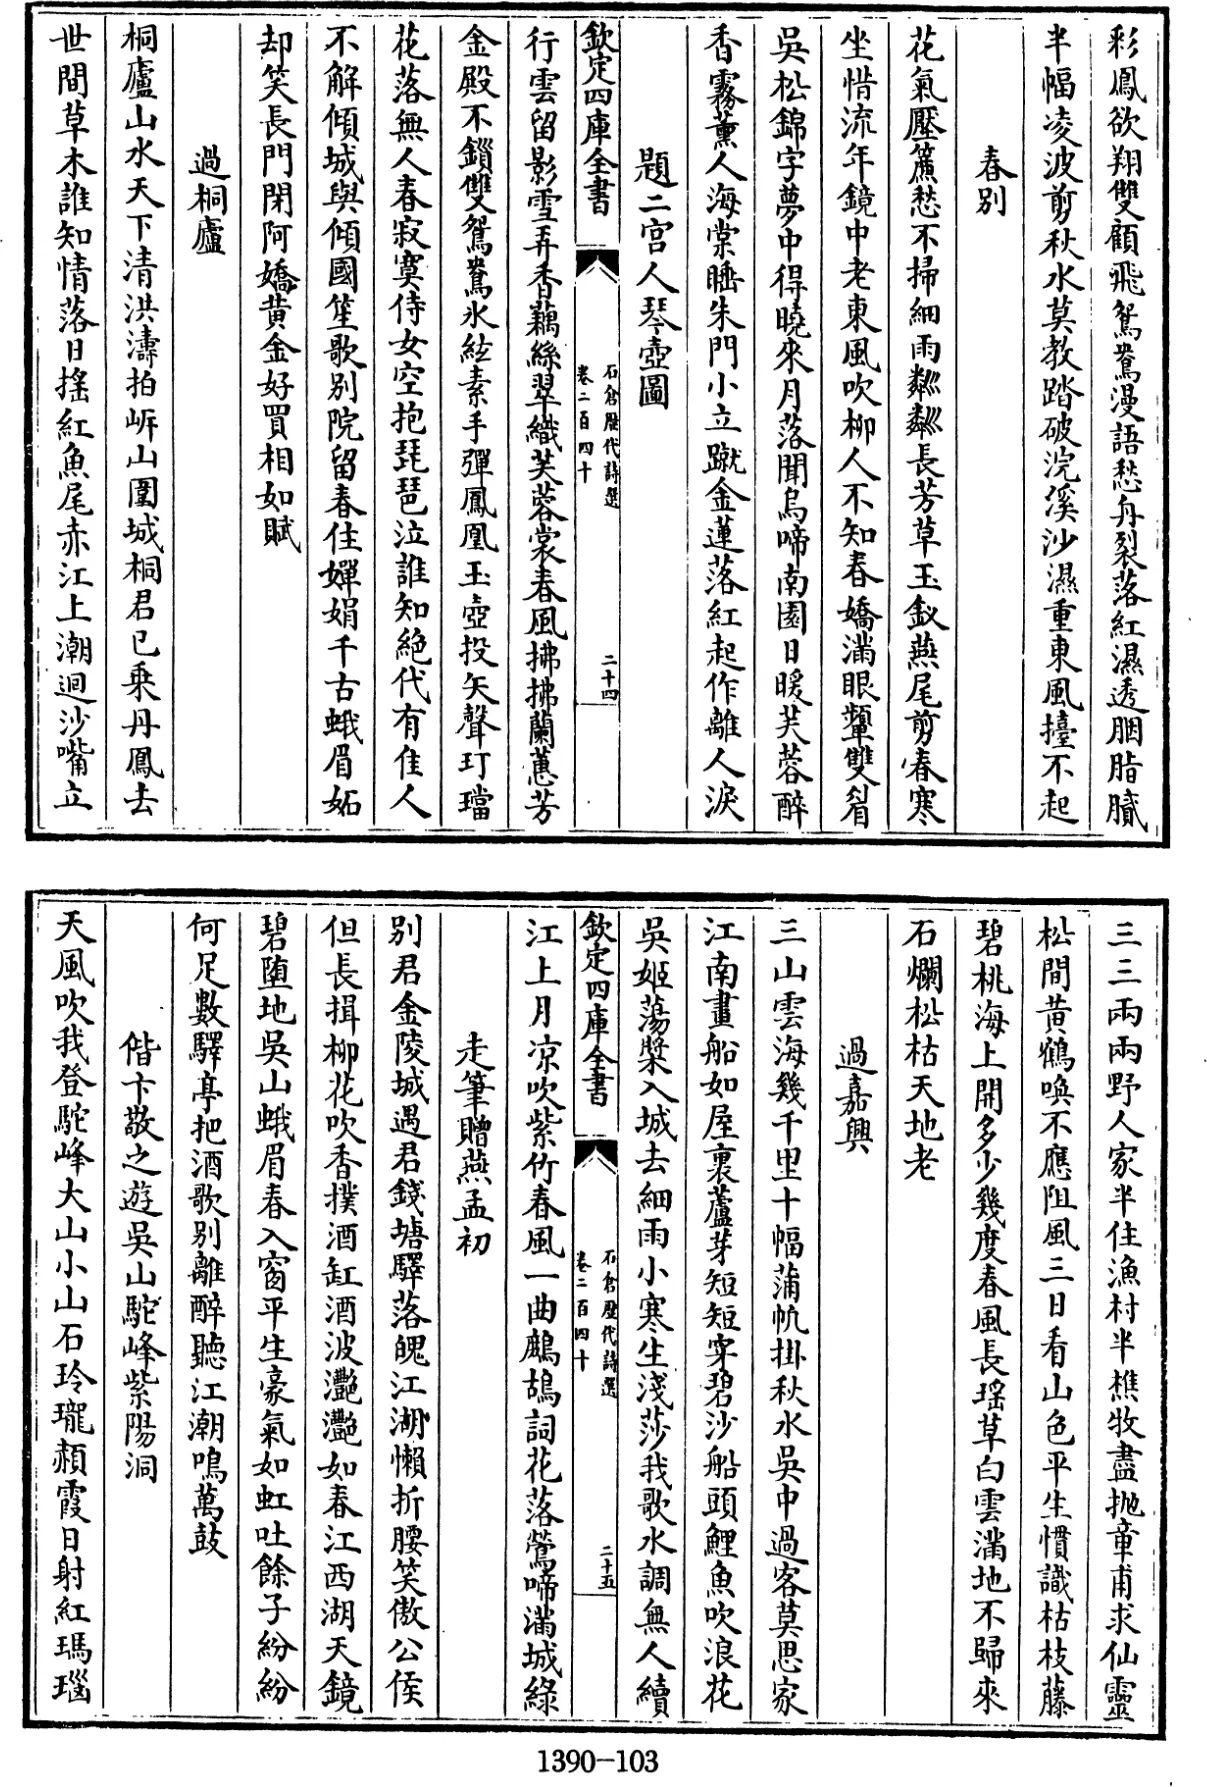 彩鳳欲翔雙顧飛鴛鴦漫語愁舟裂落紅濕透胭脂膩
半幅凌波剪秋水莫教踏破浣溪沙濕重東風擡不起
春别
花氣壓簾愁不掃細雨粼粼長芳草玉釵燕尾剪春寒
坐惜流年鏡中老東風吹柳人不知春嬌滿眼顰雙眉
吳松錦字夢中得曉來月落聞烏啼南園日暖芙蓉醉
香霧薰人海棠睡朱門小立蹴金蓮落紅起作離人淚
題二宫人琴壺圖
欽定四庫全書
石倉歷代詩選
卷二百四十
二十四
行雲留影雪弄香藕絲翠織芙蓉裳春風拂拂蘭蕙芳
金殿不鎖雙鴛鴦氷絃素手彈鳳凰玉壺投矢聲玎璫
花落無人春寂寞侍女空抱琵琶泣誰知絶代有佳人
不解傾城與傾國笙歌别院留春住嬋娟千古蛾眉妬
却笑長門閉阿嬌黄金好買相如賦
過桐廬
桐廬山水天下清洪濤拍岸山圍城桐君已乘丹鳳去
世間草木誰知情落日搖紅魚尾赤江上潮迴沙嘴立
三三兩兩野人家半住漁村半樵牧盡抛章甫求仙靈
松間黄鶴喚不應阻風三日看山色平生慣識枯枝藤
碧桃海上開多少幾度春風長瑶草白雲滿地不歸來
石爛松枯天地老
過嘉興
三山雲海幾千里十幅蒲帆掛秋水吳中過客莫思家
江南畫船如屋裏蘆芽短短穿碧沙船頭鯉魚吹浪花
吳姬蕩槳入城去細雨小寒生淺莎我歌水調無人續
欽定四庫全書
石倉歷代詩選
卷二百四十
二十五
江上月凉吹紫竹春風一曲鷓鴣詞花落鶯啼滿城綠
走筆贈燕孟初
别君金陵城遇君錢塘驛落魄江湖懶折腰笑傲公侯
但長揖柳花吹香撲酒缸酒波灔灔如春江西湖天鏡
碧墮地吳山蛾眉春入窗平生豪氣如虹吐餘子紛紛
何足數驛亭把酒歌别離醉聽江潮鳴萬鼓
偕卞敬之遊吳山駝峰紫陽洞
天風吹我登駝峰大山小山石玲瓏頳霞日射紅瑪瑙
1390-103